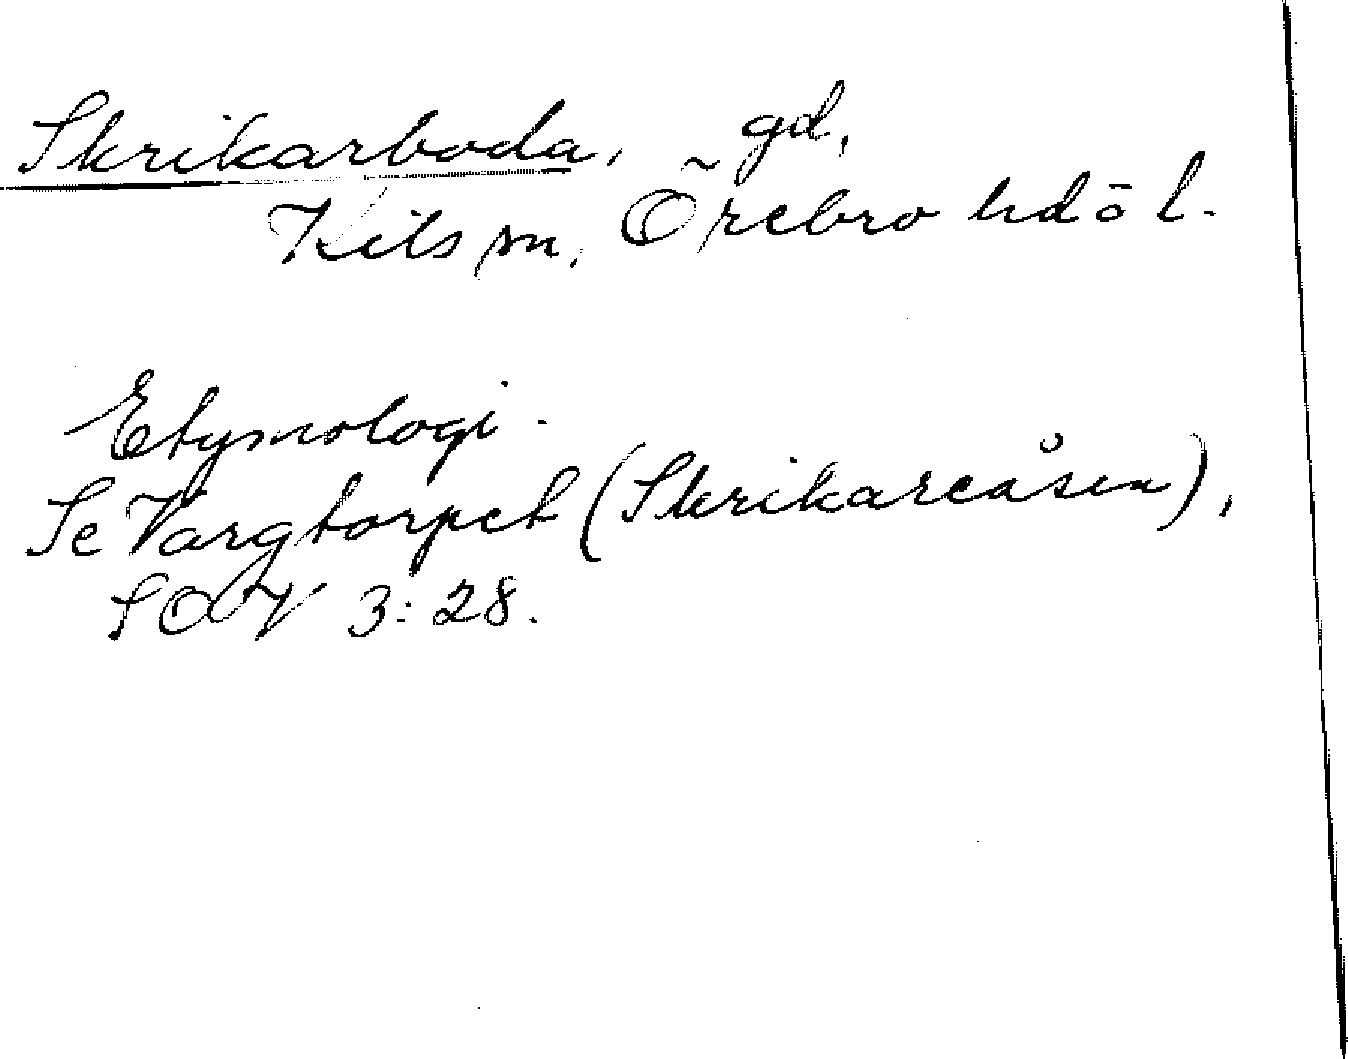 Skrikarboda, gd,
Kils sn, Örebro hd ö l.
Etymologi.
Se Vargtorpet (Skrikareåsen),
SOÖ V 3:28.